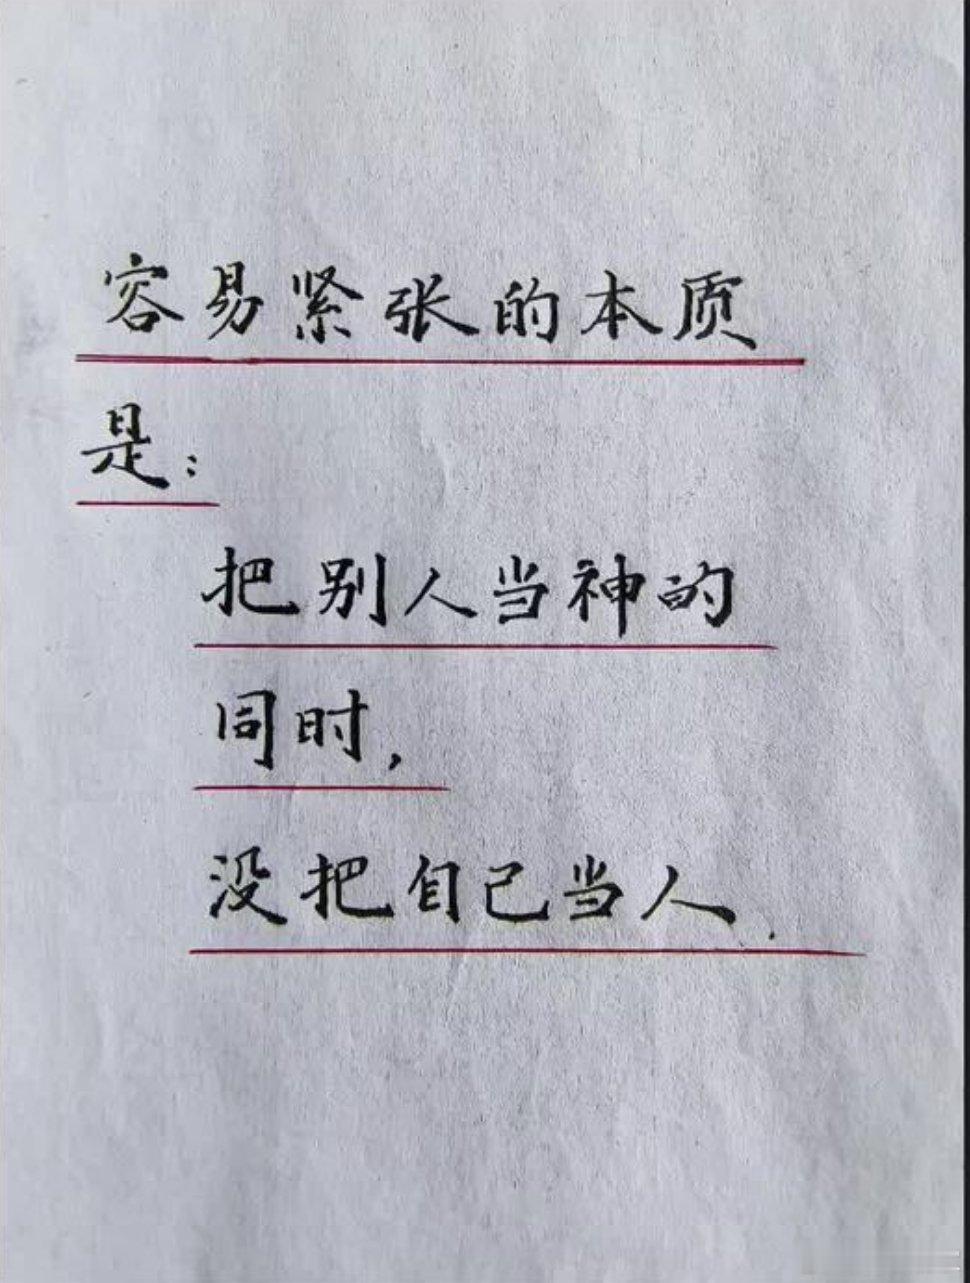 容易紧张的本质
是：
把别人当神的
同时，
没把自己当人.